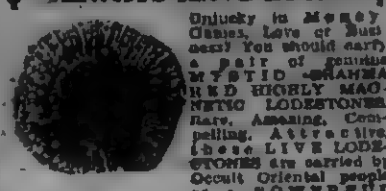 Unlucky in Money
Games, Love or Busi
ness? You should carry
a pair of genuine
MYSTIC BRAHMA
RED HIGHLY MAG-
NETIC LODESTONES
Rare, Amazing, Com-
pelling, Attractive
these LIVE LODE-
STONES are carried by
Occult Oriental people